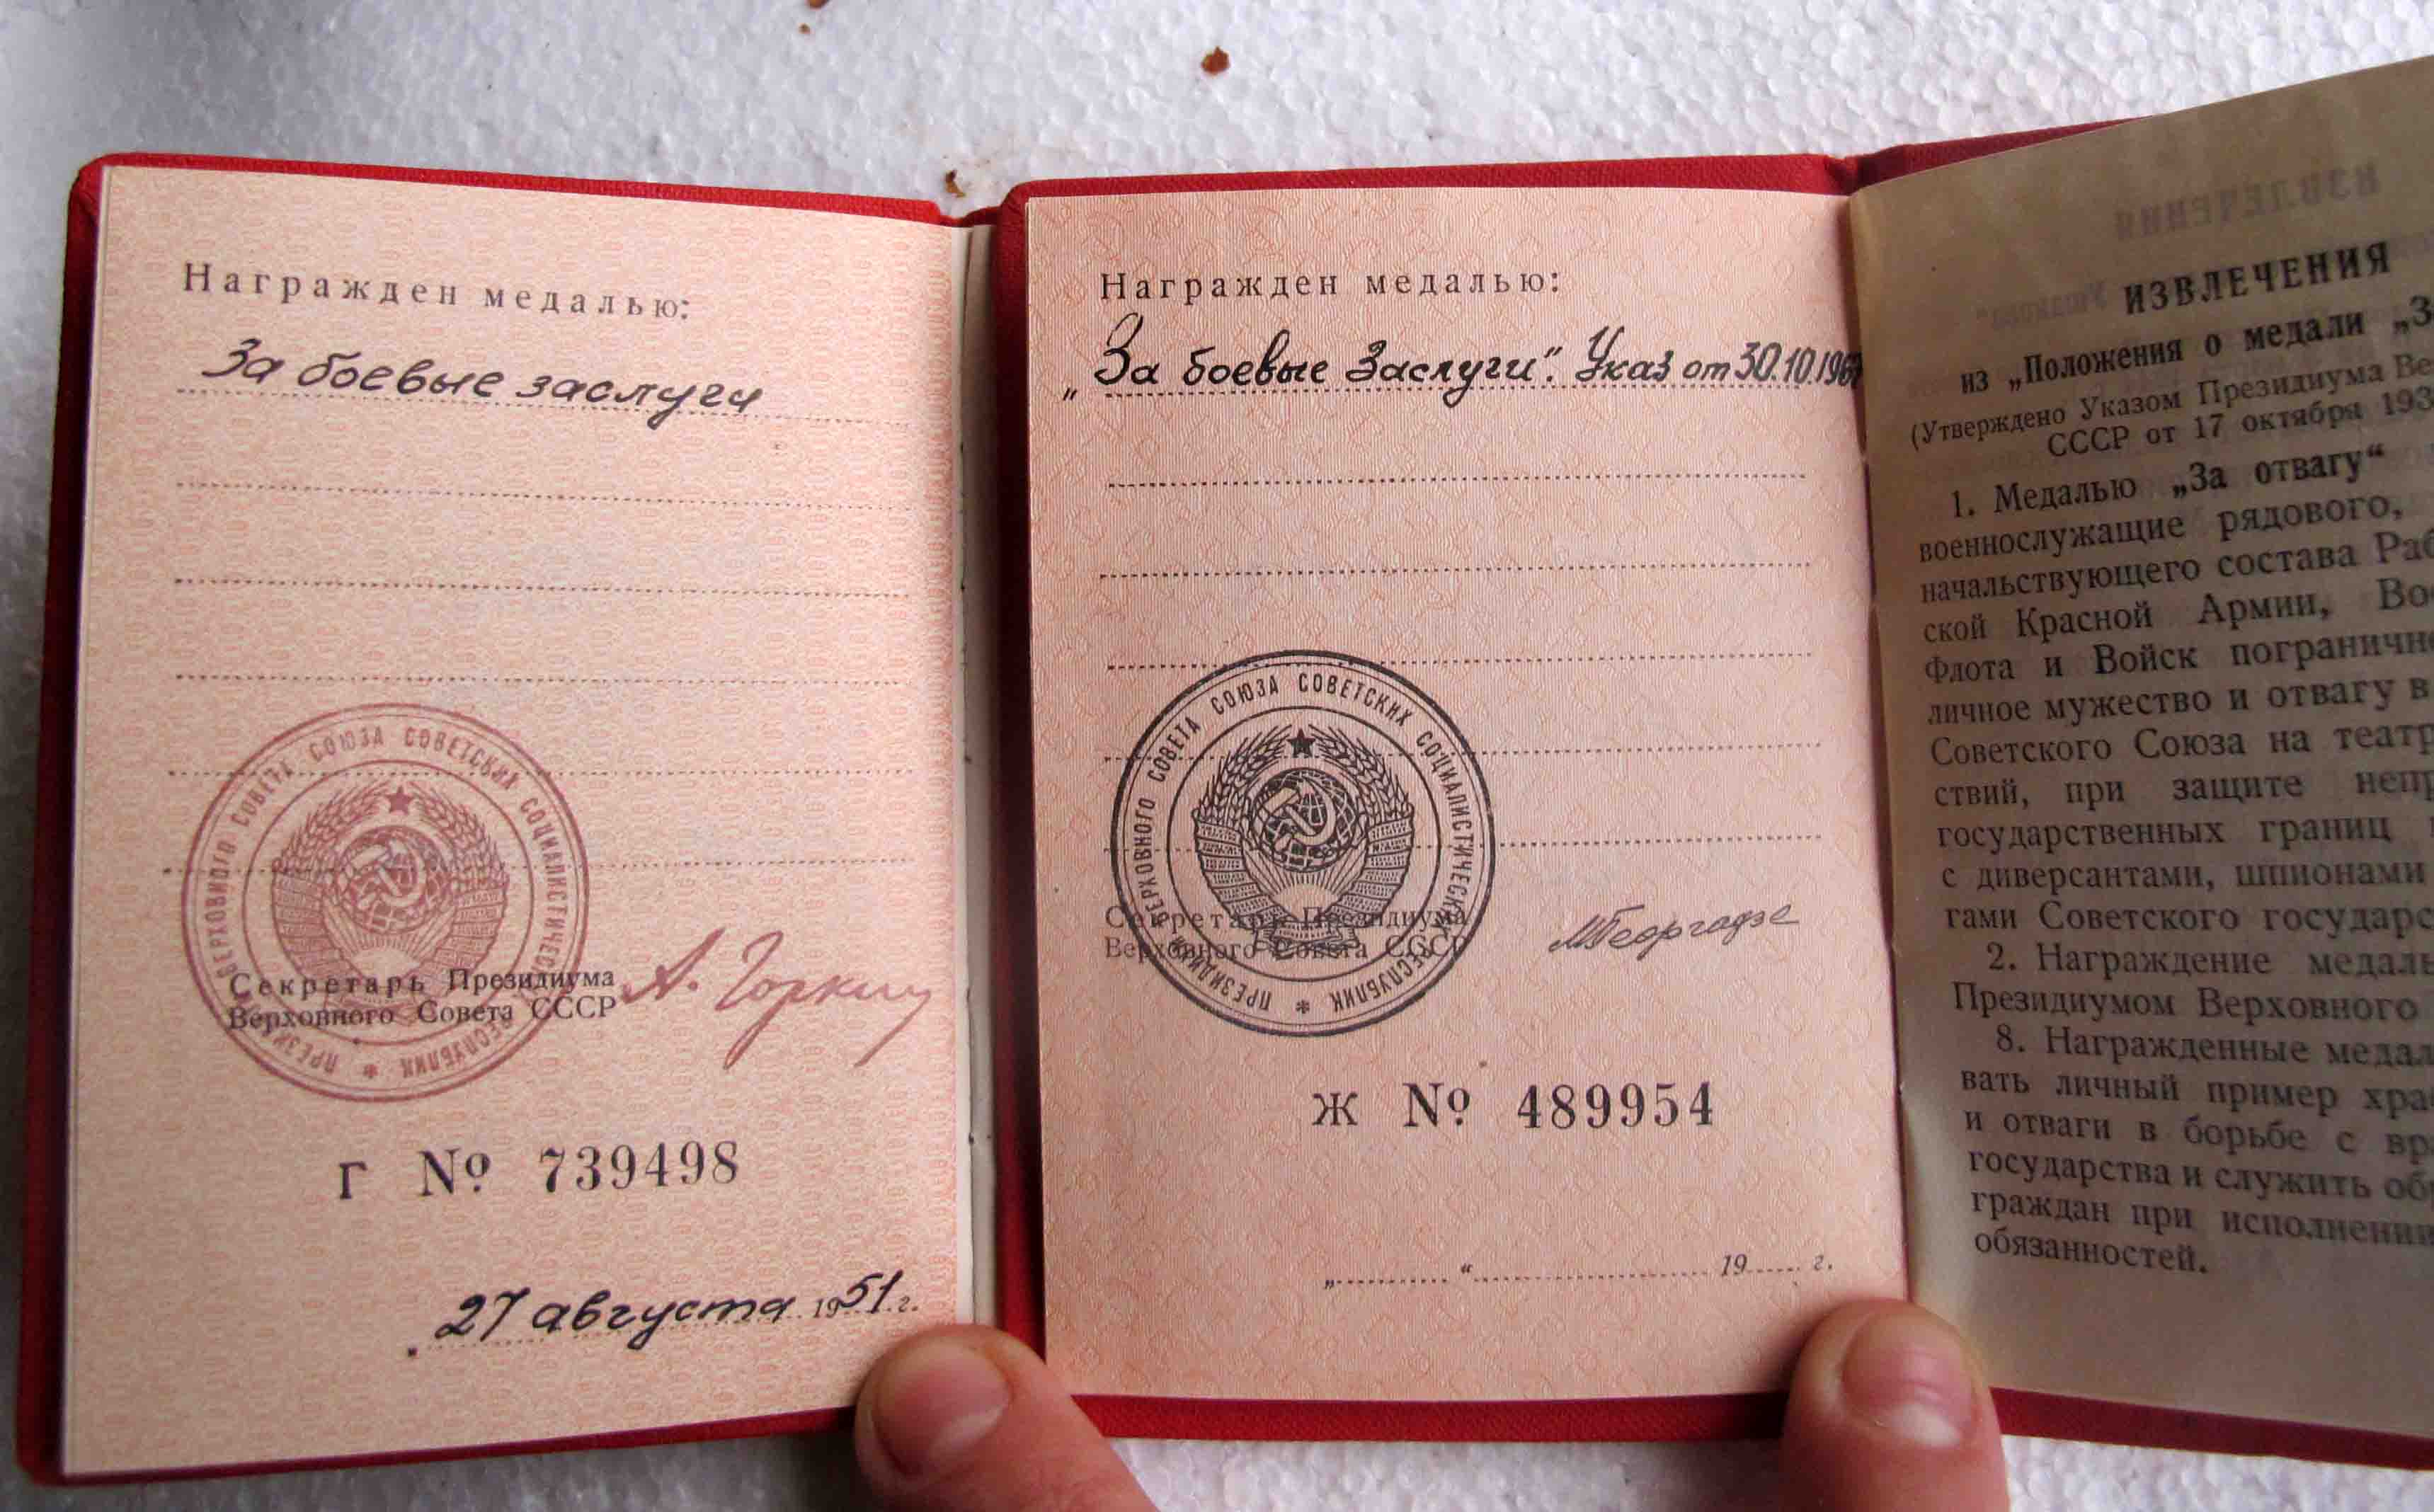 Награжден медалью:
За боевые заслуги
ПРЕЗИДИУМ ВЕРХОВНОГО СОВЕТА СОЮЗА СОВЕТСКИХ СОЦИАЛИСТИЧЕСКИХ РЕСПУБЛИК *
Секретарь Президиума
Верховного Совета СССР
А. Горкин
Г № 739498
27 августа 1951 г.
Награжден медалью:
„За боевые Заслуги". Указ от 30.10.1967
ПРЕЗИДИУМ ВЕРХОВНОГО СОВЕТА СОЮЗА СОВЕТСКИХ СОЦИАЛИСТИЧЕСКИХ РЕСПУБЛИК *
Секретарь Президиума
Верховного Совета СССР
М Георгадзе
Ж № 489954
„ “ 19 г.
ИЗВЛЕЧЕНИЯ
из „Положения о медали „З
(Утверждено Указом Президиума Ве
СССР от 17 октября 193
1. Медалью „За отвагу“
военнослужащие рядового,
начальствующего состава Раб
ской Красной Армии, Вое
Флота и Войск погранично
личное мужество и отвагу в
Советского Союза на театр
ствий, при защите непр
государственных границ
с диверсантами, шпионами
гами Советского государс
2. Награждение медаль
Президиумом Верховного
8. Награжденные медал
вать личный пример хра
и отваги в борьбе с вр
государства и служить обр
граждан при исполнении
обязанностей.